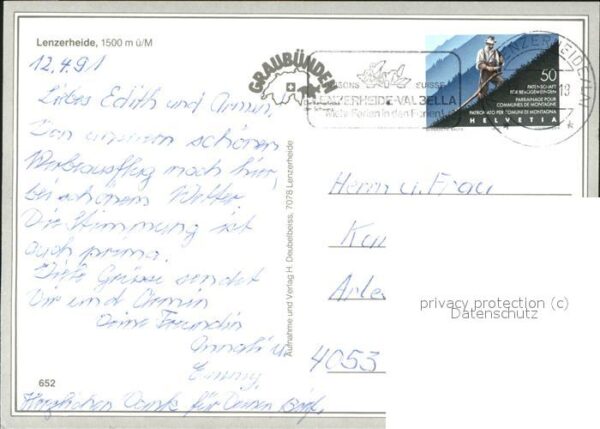 Lenzerheide, 1500 m ü/M
12.4.91
Liebes Edith und Armin,
Von unserem schönen
nach hier,
bei schönem Wetter.
Die Stimmung ist
auch prima.
Viele Grüsse sendet
Dir und Armin
Deine Freundin
Annali u.
Emmy.
Herzlichen Dank für Deinen Brief.
652
Aufnahme und Verlag H. Deubelbeiss, 7078 Lenzerheide
GRAUBÜNDEN
SUISSE
LENZERHEIDE-VALBELLA
Ferien in den Ferien
LENZERHEIDE/LAI
50
PATENSCHAFT
FÜR BERGGEMEINDEN
PARRAINAGE POUR
COMMUNES DE MONTAGNE
PATRONATO PER COMUNI DI MONTAGNA
HELVETIA
Herrn u. Frau
4053
privacy protection (c)
Datenschutz